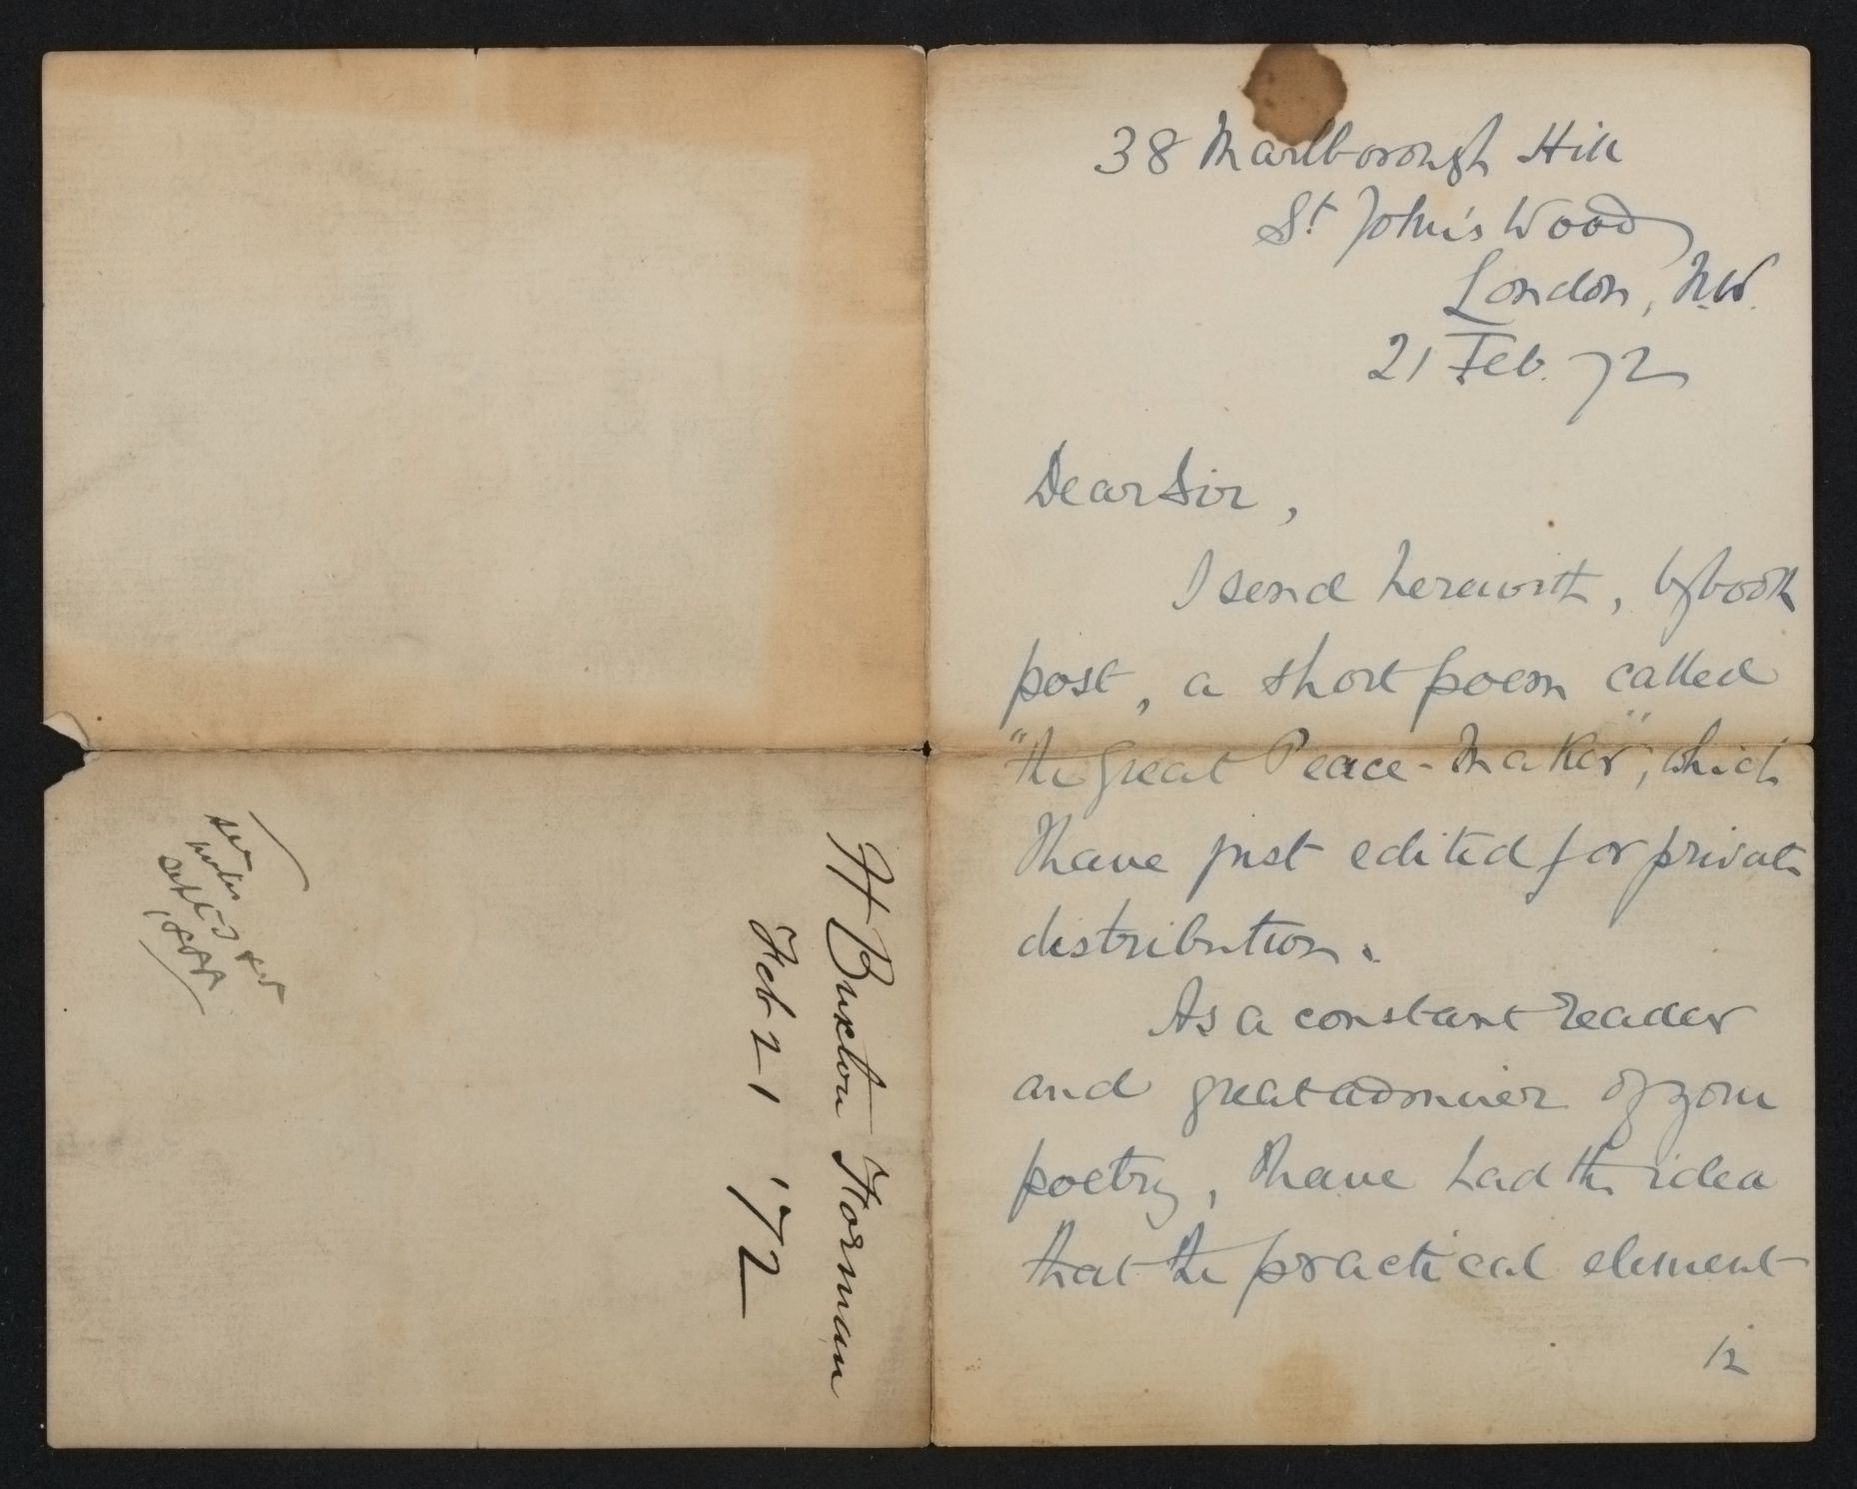 38 Marlborough Hill
St. John's Wood
London, N.W.
21 Feb. 72
Dear Sir,
I send herewith, by book
post, a short poem called
"the great Peace-Maker", which
I have just edited for private
distribution.
As a constant reader
and great admirer of your
poetry, I have had the idea
that the practical element
/2
H Buxton Forman
Feb 21 '72
see
notes
Sept: 3 &
1888